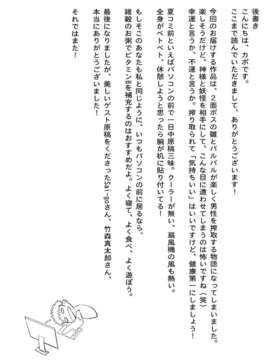 後書き
こんにちは、カボです。
ここまで読んでいただきまして、ありがとうございます!
今回のお届けする作品は、2面ボスの麗とバルバルが楽しく男性を搾取する物語になってしまいました。
楽しそうだけど、神様と妖怪を相手にして、こんな目に遭わせてしまうのは怖いですね(笑)
幸運と言うか、不運と言うか。搾り取られて「気持ちいい」はいいですけど、健康第一にしましょう!
夏コミ前といえばパソコンの前で一日中原稿三昧。クーラーが無い、扇風機の風も熱い。
全身がベトベト、休憩しようと思ったら腕が机に貼り付いてる!
もしそこのあなたも私と同じように、いつもパソコンの前に居るなら、
雑穀のお粥でビタミンBを補充するのはおすすめだよ。よく寝て、よく食べ、よく遊ぼう。
最後になりましたが、美しいゲスト原稿をくださった
さん、竹森真太郎さん、
本当にありがとうございました!
それではまた!